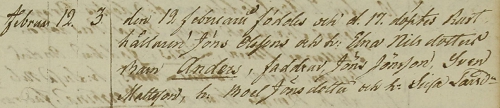 Februar. 12. 3 den 12 februarii föddes och d. 17. döptes
hållarin Jöns Olssons och h. Elna Nils dotters
barn Anders, faddrar, Jöns Jönsson, Sven
Mattson, h. Boel Jöns dotter och h. Sissa